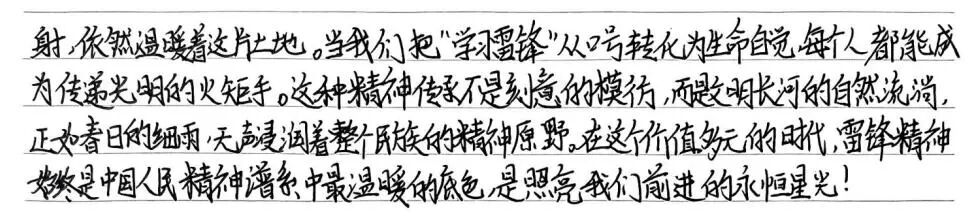 射,依然温暖着这片土地。当我们把"学习雷锋"从口号转化为生命自觉,每个人都能成
为传递光明的火矩手。这种精神传承不是刻意的模仿,而是文明长河的自然流淌,
正如春日的细雨,无声浸润着整个民族的精神原野。在这个价值多元的时代,雷锋精神
始终是中国人民精神谱系中最温暖的底色,是照亮我们前进的永恒星光!